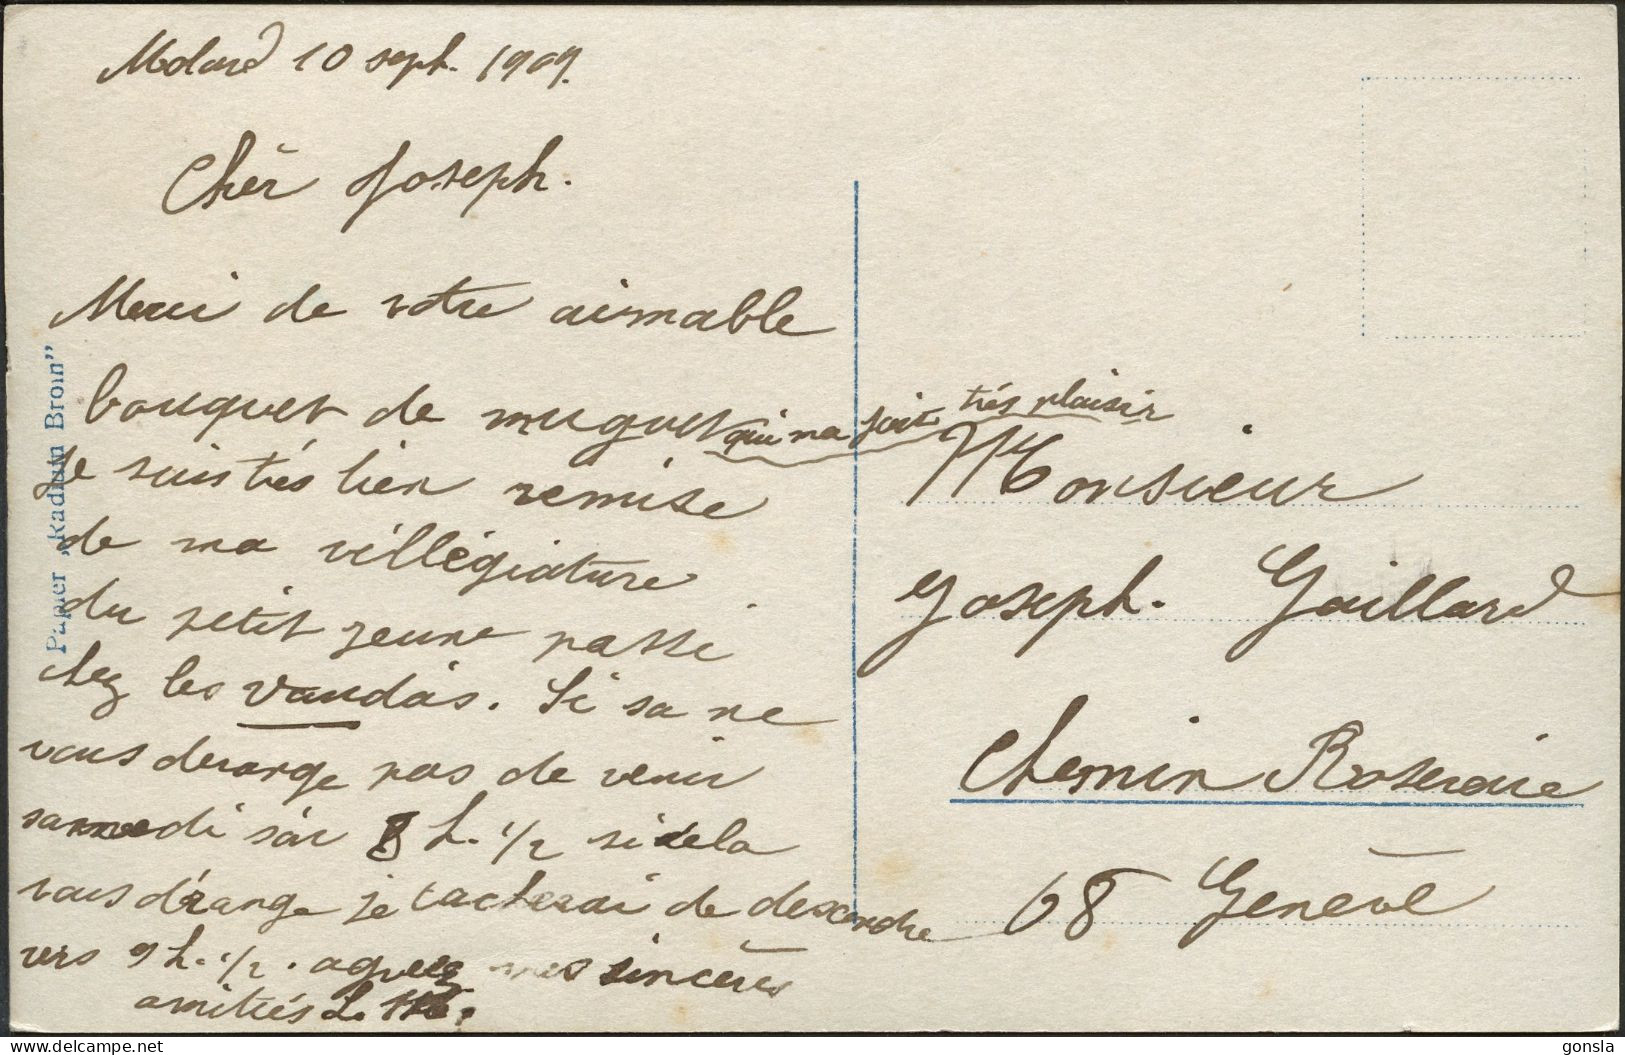 Molard 10 sept. 1909.
Chèr Joseph.
Merci de votre aismable
bouquet de muguet qui ma fait très plaisir
Je suis très bien remise
de ma villégiature
du petit jeune passé
chez les vaudois. Si sa ne
vous derange pas de venir
samedi soir 8 h. 1/2 si cela
vous dérange je tacherai de descendre
vers 9 h. 1/2. agreez mes sincères
amitiés L.
Papier „Radium Brom”
Monsieur
Joseph. Gaillard
Chemin Roseraie
68 Genève
gonsla